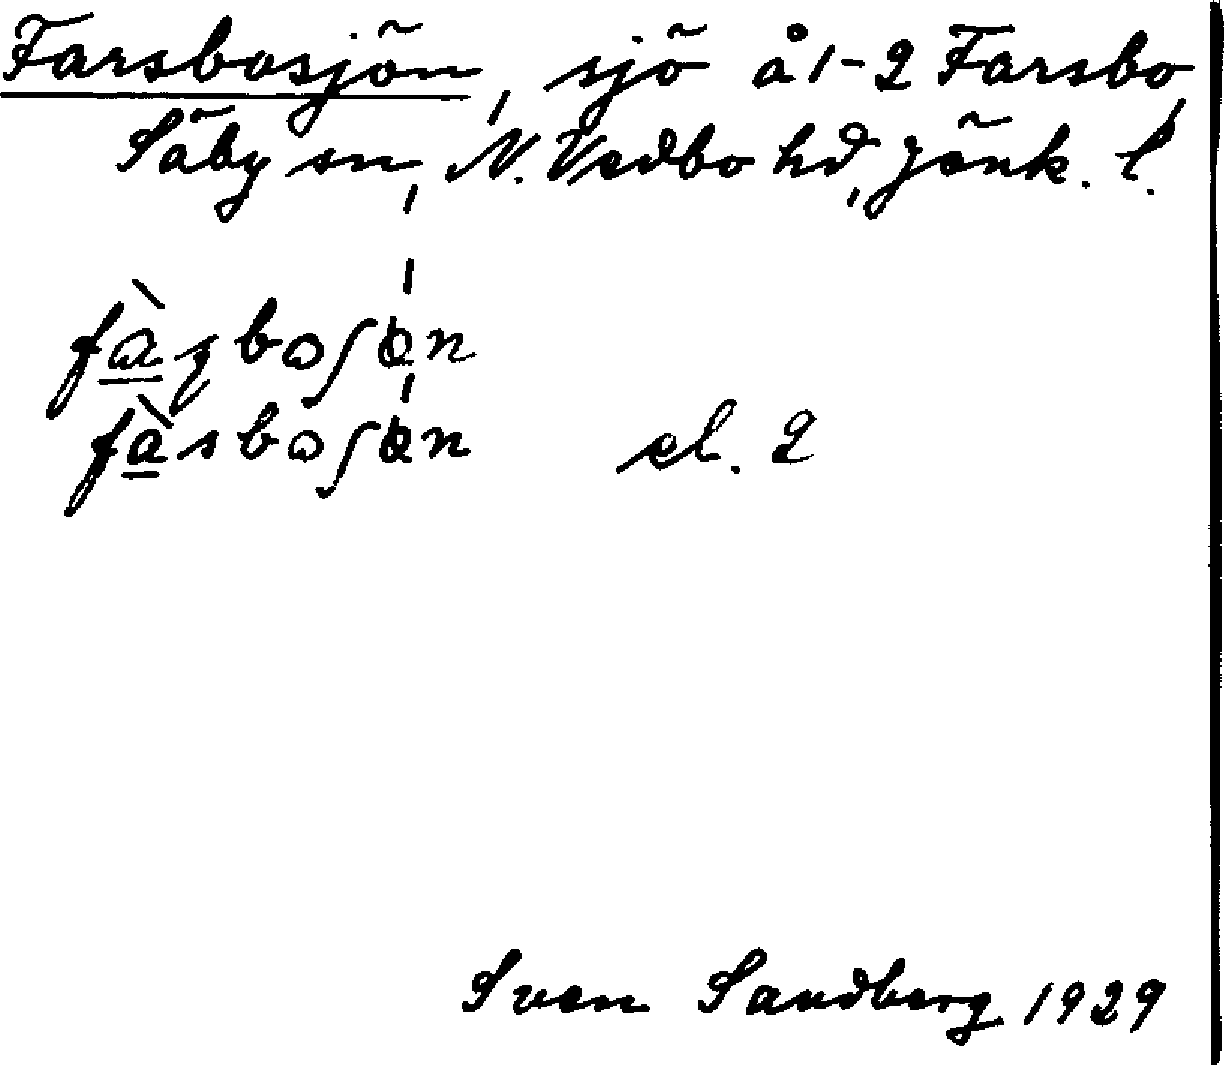 Farsbosjön, sjö å 1-2 Farsbo,
Säby sn, N. Vedbo hd, Jönk. l.
el. 2
Sven Sandberg 1929